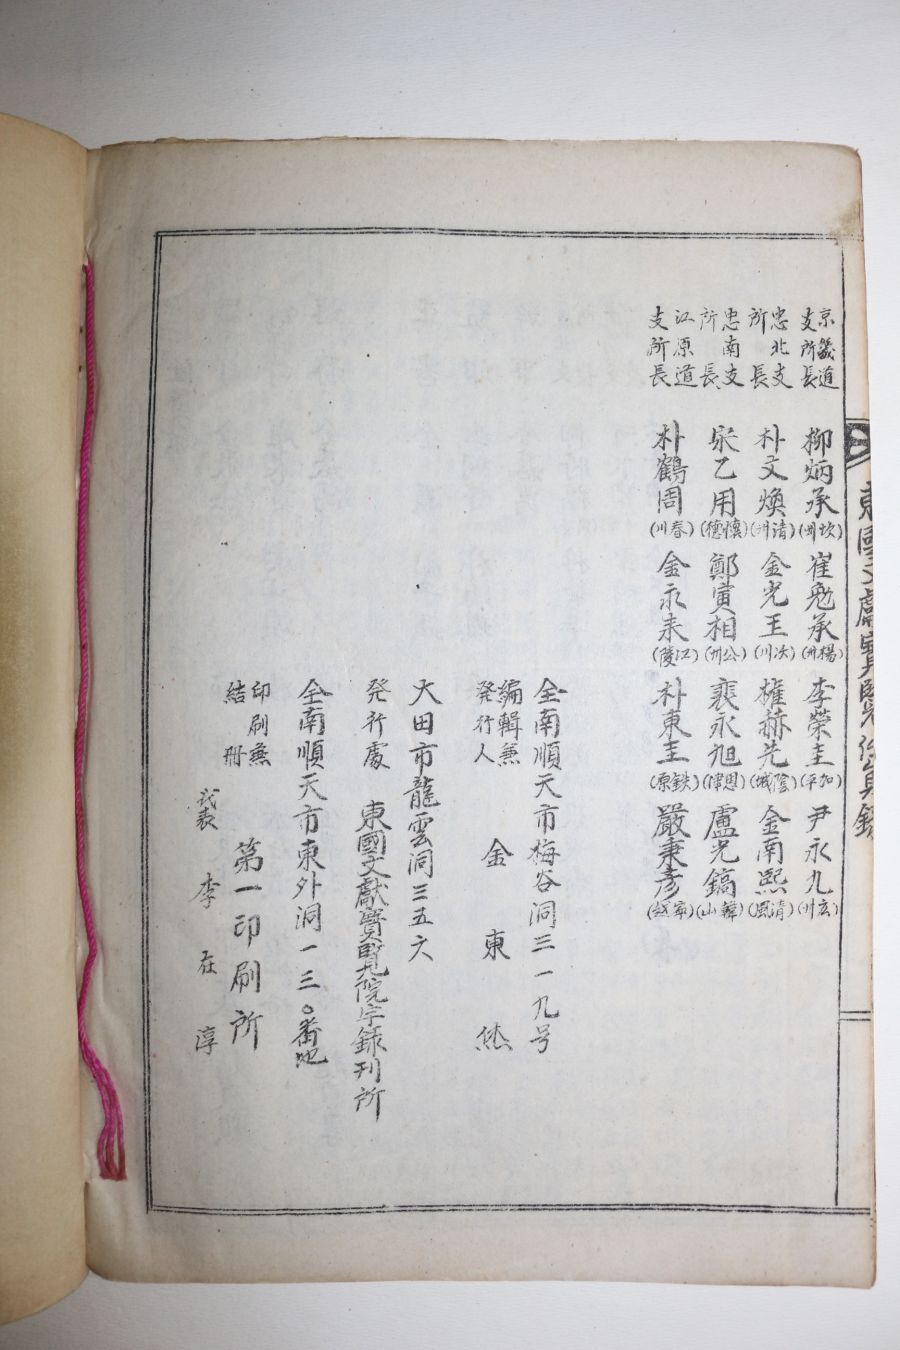 東國文獻寶鑑
京畿道支所長 柳炳承 崔勉承(楊州) 李榮圭(加平) 尹永九
忠北支所長 朴文煥(清州) 金光王 權赫先(陰城) 金南熙(清風)
忠南支所長 宋乙用(懷德) 鄭寅相(公州) 裵永旭(恩津) 盧光鎬(韓山)
江原道支所長 朴鶴周(春川) 金永来(江陵) 朴東圭(鉄原) 嚴秉彦(寧越)
全南順天市梅谷洞三一九号
編輯兼發行人 金東
大田市龍雲洞三五六
発行處 東國文獻寶覧院字録刊所
全南順天市東外洞一三〇番地
印刷兼結冊 第一印刷所
代表 李在淳